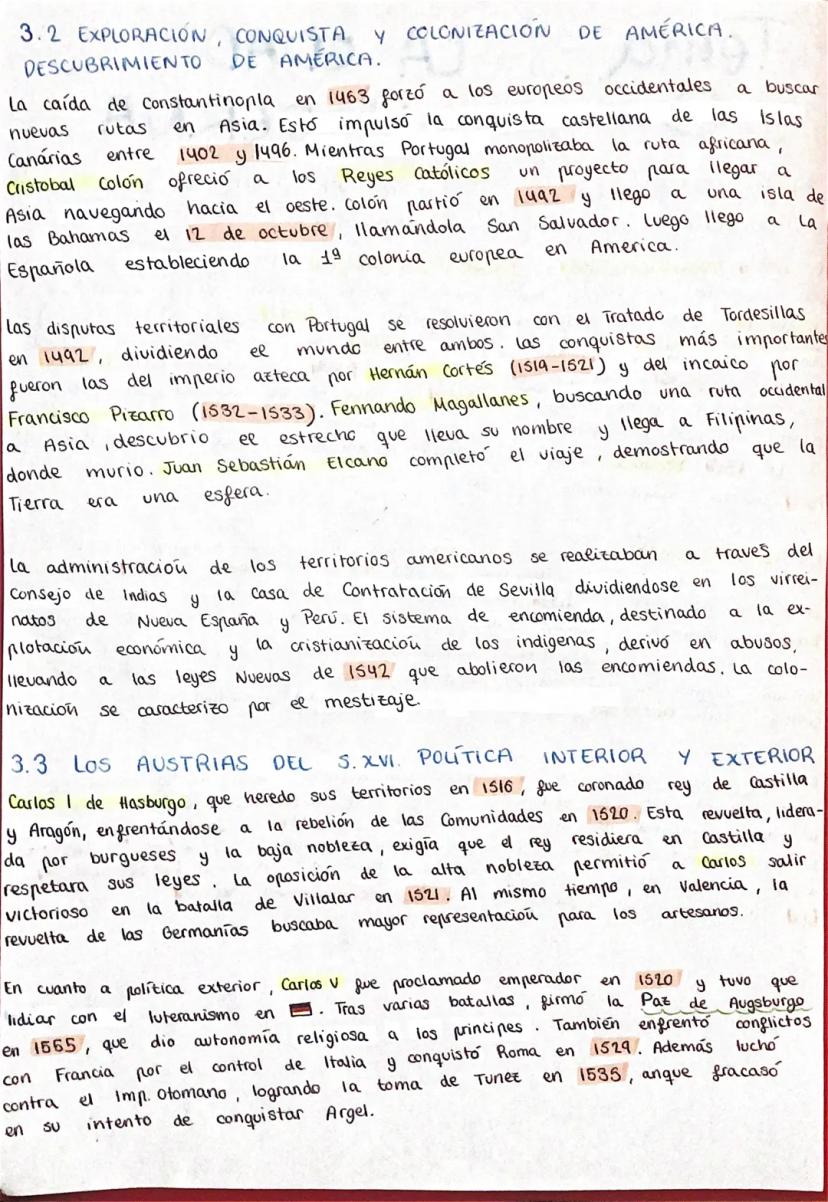 3.2 EXPLORACIÓN, CONQUISTA Y COLONIZACIÓN DE AMÉRICA.
DESCUBRIMIENTO DE AMÉRICA.
La caída de Constantinopla en 1463 forzó a los europeos occidentales a buscar
nuevas rutas en Asia. Estó impulsó la conquista castellana de las Islas
Canárias entre 1402 y 1496. Mientras Portugal monopolizaba la ruta africana,
Cristobal Colón ofreció a los Reyes Católicos un proyecto para llegar a
Asia navegando hacia el oeste. Colón partió en 1492 y llego a una isla de
las Bahamas el 12 de octubre, llamándola San Salvador. Luego llego a La
Española estableciendo la 1ª colonia europea en America.
Las disputas territoriales con Portugal se resolvieron con el Tratado de Tordesillas
en 1492, dividiendo el mundo entre ambos. Las conquistas más importantes
fueron las del imperio azteca por Hernán Cortés (1519-1521) y del incaico por
Francisco Pizarro (1532-1533). Fennando Magallanes, buscando una ruta occidental
a Asia, descubrio el estrecho que lleva su nombre y llega a Filipinas,
donde murio. Juan Sebastián Elcano completó el viaje, demostrando que la
Tierra era una esfera.
La administración de los territorios americanos se realizaban a través del
Consejo de Indias y la Casa de Contratación de Sevilla dividiendose en los virrei-
natos de Nueva España y Perú. El sistema de encomienda, destinado a la ex-
plotación económica y la cristianización de los indigenas, derivó en abusos,
llevando a las leyes Nuevas de 1542 que abolieron las encomiendas. La colo-
nización se caracterizo por el mestizaje.
3.3 LOS AUSTRIAS DEL S. XVI. POLÍTICA INTERIOR Y EXTERIOR
Carlos I de Hasburgo, que heredo sus territorios en 1516, fue coronado rey de Castilla
y Aragón, enfrentándose a la rebelión de las Comunidades en 1520. Esta revuelta, lidera-
da por burgueses y la baja nobleza, exigía que el rey residiera en Castilla y
respetara sus leyes. La oposición de la alta nobleza permitió a Carlos salir
victorioso en la batalla de Villalar en 1521. Al mismo tiempo, en Valencia, la
revuelta de las Germanías buscaba mayor representación para los artesanos.
En cuanto a política exterior, Carlos V fue proclamado emperador en 1520 y tuvo que
lidiar con el luteranismo en. Tras varias batallas, firmó la Paz de Augsburgo
en 1555, que dio autonomía religiosa a los príncipes. También enfrentó conflictos
con Francia por el control de Italia y conquistó Roma en 1529. Además luchó
contra el Imp. Otomano, logrando la toma de Tunez en 1535, anque fracasó
en su intento de conquistar Argel.